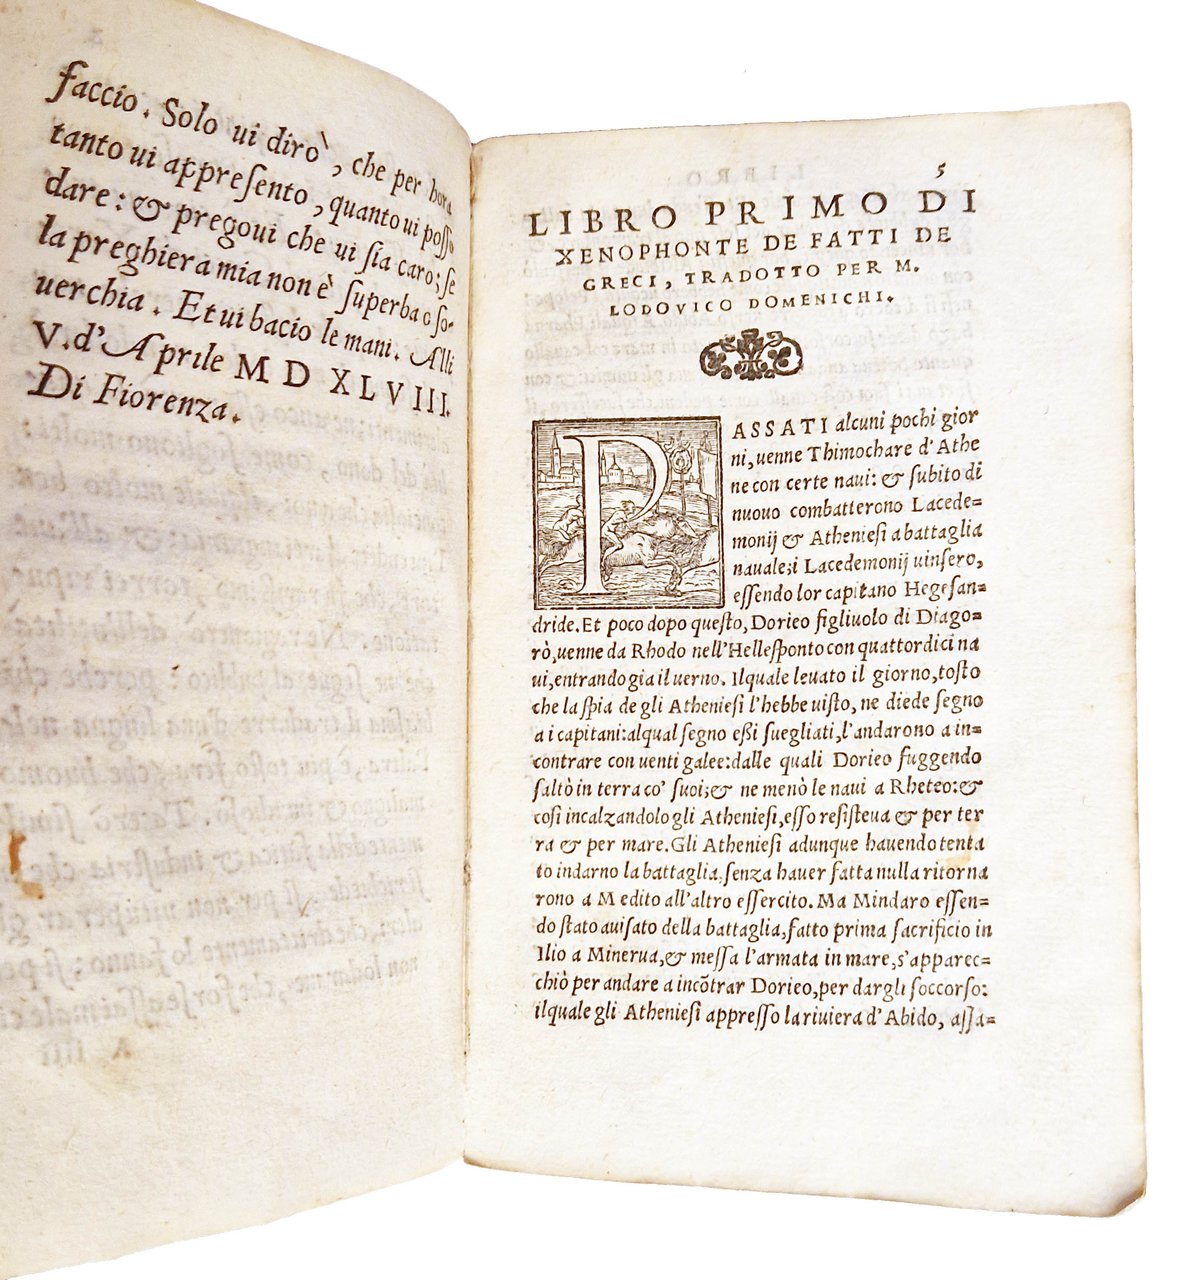 faccio. Solo ui dirò, che per hora
tanto ui appresento, quanto ui posso
dare: & pregoui che ui sia caro; se
la preghiera mia non è superba o so-
uerchia. Et ui bacio le mani. Alli
V. d'Aprile M D XLVIII.
Di Fiorenza.
5
LIBRO PRIMO DI
XENOPHONTE DE FATTI DE
GRECI, TRADOTTO PER M.
LODOVICO DOMENICHI.
PASSATI alcuni pochi gior
ni, uenne Thimochare d'Athe
ne con certe naui: & subito di
nuouo combatterono Lacede=
monij & Atheniesi a battaglia
nauale; i Lacedemonij uinsero,
essendo lor capitano Hegesan=
dride. Et poco dopo questo, Dorieo figliuolo di Diago=
rò, uenne da Rhodo nell'Hellesponto con quattordici na
ui, entrando gia il uerno. Ilquale leuato il giorno, tosto
che la spia de gli Atheniesi l'hebbe uisto, ne diede segno
a i capitani: alqual segno eßi suegliati, l'andarono a in=
contrare con uenti galee: dalle quali Dorieo fuggendo
saltò in terra co' suoi; & ne menò le naui a Rheteo: &
cosi incalzandolo gli Atheniesi, esso resisteua & per ter
ra & per mare. Gli Atheniesi adunque hauendo tenta
to indarno la battaglia, senza hauer fatta nulla ritorna
rono a Medito all'altro essercito. Ma Mindaro essen=
do stato auisato della battaglia, fatto prima sacrificio in
Ilio a Minerua, & messa l'armata in mare, s'apparec=
chiò per andare a incõtrar Dorieo, per dargli soccorso:
ilquale gli Atheniesi appresso la riuiera d'Abido, assa=